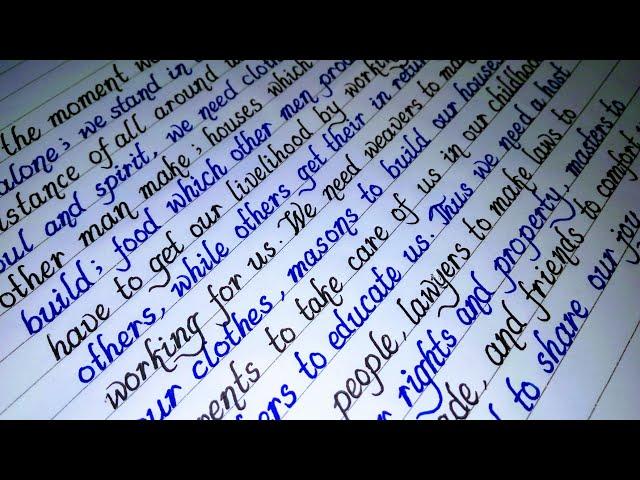 the moment we
alone; we stand in
istance of all around u
oul and spirit, we need clot
other man make; houses which
build; food which other men pro
have to get our livelihood by working
others, while others get their in retur
working for us. We need weavers to ma
our clothes, masons to build our houses
ments to take care of us in our childhood
ers to educate us. Thus we need a host
people, lawyers to make laws to
r rights and property, masters to
ade, and friends to comfort
d to share our joy